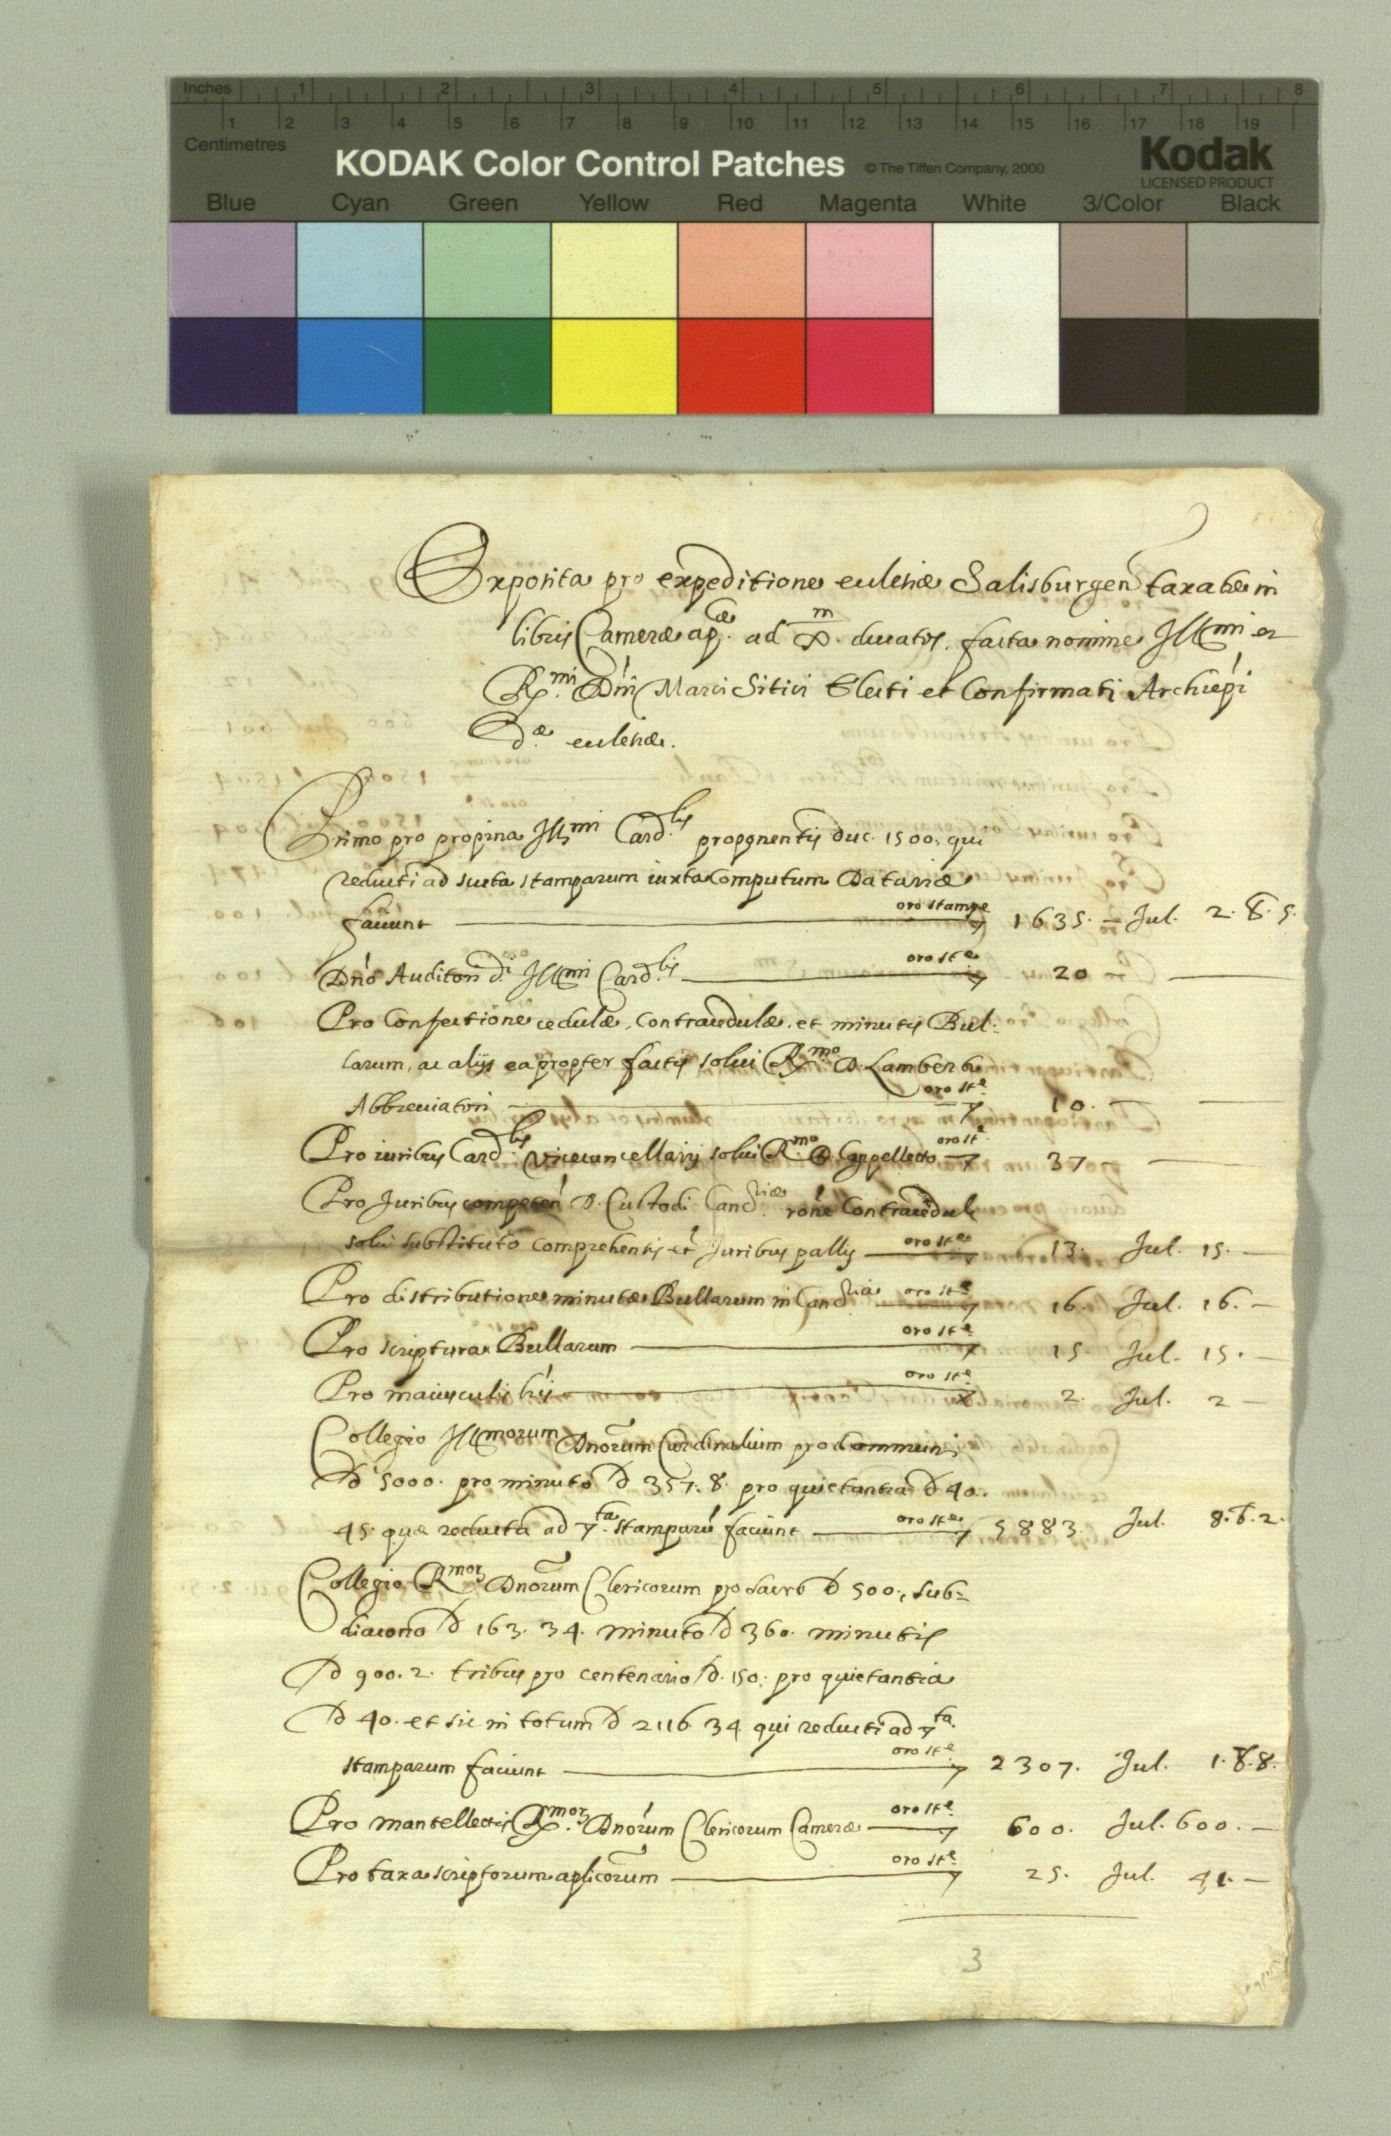 Inches 1 2 3 4 5 6 7 8
1 2 3 4 5 6 7 8 9 10 11 12 13 14 15 16 17 18 19
Centimetres
KODAK Color Control Patches © The Tiffen Company, 2000 Kodak
LICENSED PRODUCT
Blue Cyan Green Yellow Red Magenta White 3/Color Black
Exposita pro expeditione ecclesiæ Salisburgen taxatæ in
libris Cameræ ap.cæ ad X.m ducatis. facta nomine Ill.mi et
R.mi Dni Marci Sitici Electi et Confirmati Archiepi
D.æ ecclesiæ.
Primo pro propina Ill.mi Card.lis proponentis duc. 1500. qui
reducti ad scuta stamparum iuxta Computum Datariæ
faciunt oro stampe 1635. — Jul. 2. 5.
Dno Auditori d.i Ill.mi Card.lis oro st.e 20
Pro Confectione cedulæ, Contracedulæ, et minutis Bul:
larum, ac alijs ea propter factis solui R.mo D. Lamberto
Abbreviatori oro st.e 10.
Pro iuribus Card.lis Vicecancellarij solui R.mo D. Cappelletto oro st.e 37
Pro Juribus competen D. Custodi Canc.riæ rone Contracedulæ
solui substituto comprehensis et Juribus pallij oro st.e 13. Jul. 15. —
Pro distributione minutæ Bullarum in Canc.ria oro st.e 16. Jul. 16. —
Pro scriptura Bullarum oro st.e 15 Jul. 15. —
Pro maiusculis lris oro st.e 2. Jul. 2 —
Collegio Ill.morum Dnorum Cardinalium pro Communi
D 5000. pro minuto D 357. 8. pro quietantia D 40.
45. quæ reducta ad ta. stamparu faciunt oro st.e 5883. Jul. 8. 6. 2.
Collegio R.mor Dnorum Clericorum pro sacro D 500., sub=
diacono D 163. 34. minuto D 360. minutis
D 900. 2. tribus pro centenario D. 150. pro quietantia
D 40. et sic in totum D 2116. 34. qui reducti ad ta.
stamparum faciunt oro st.e 2307. Jul. 1. 8. 8.
Pro mantellettis R.mor Dnorum Clericorum Cameræ oro st.e 600. Jul. 600. —
Pro taxa scriptorum aplicorum oro st.e 25. Jul. 41. —
3